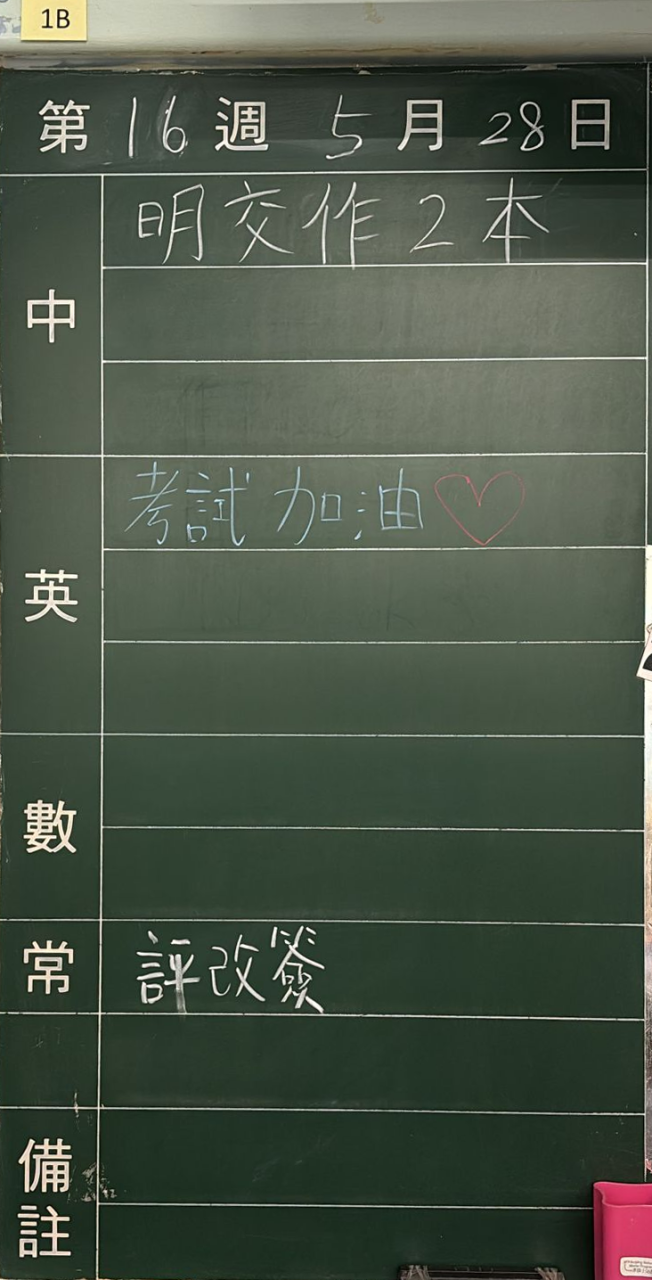 1B
第 16 週 5 月 28 日
中
明交作2本
英
考試 加油
數
常
評改簽
備註